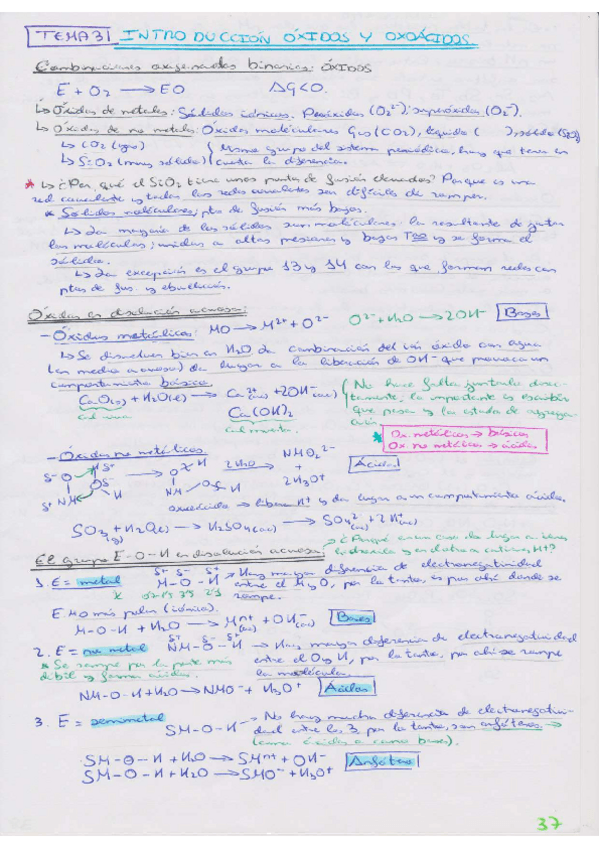 TEMA 3 INTRODUCCIÓN ÓXIDOS Y OXOÁCIDOS.
Combinaciones oxigenadas binarias: ÓXIDOS
E + O2 → EO ΔG<0.
↳ Óxidos de metales: Sólidos iónicos. Peróxidos (O2²⁻); superóxidos (O2⁻).
↳ Óxidos de no metales: Óxidos moleculares gas (CO2), líquido ( ), sólido (SiO2)
↳ CO2 (gas) Mismo grupo del sistema periódico, hay que tener en
↳ SiO2 (muy sólido) cuenta la diferencia.
* ↳ ¿Por qué el SiO2 tiene unos puntos de fusión elevados? Porque es una
red covalente y todas las redes covalentes son difíciles de romper.
* Sólidos moleculares; ptos de fusión más bajos.
↳ La mayoría de los sólidos son moleculares: la resultante de juntar
las moléculas; unidas a altas presiones y bajas Tas y se forma el
sólido.
↳ La excepción es el grupo 13 y 14 con los que forman redes con
ptos de fus. y ebullición.
Óxidos en disolución acuosa:
- Óxidos metálicos: MO → M²⁺ + O²⁻ O²⁻ + H2O → 2OH⁻ Bases
↳ Se disuelven bien en H2O la combinación del ión óxido con agua
(en medio acuoso) da lugar a la liberación de OH⁻ que provoca un
comportamiento básico.
CaO(s) + H2O(l) → Ca²⁺(ac) + 2OH⁻(ac)
cal viva Ca(OH)2
cal muerta.
No hace falta juntarlo direc-
tamente, lo importante es escribir
que pasa y los estados de agrega-
ción
* Ox. metálicos → básicos
Ox. no metálicos → ácidos
- Óxidos no metálicos
Ácidos
2H2O NMO2²⁻ + 2H3O⁺
→ libera H⁺ y da lugar a un comportamiento ácido.
SO3 + H2O(l) → H2SO4(ac) → SO4²⁻(ac) + 2H⁺(ac)
El grupo E-O-H en disolución acuosa:
¿Porqué en un caso da lugar a iones
hidroxilo y en el otro a cationes H⁺?
1. E = metal M-O-H → Hay mayor diferencia de electronegatividad
entre el M y O, por lo tanto, es por ahí donde se
rompe.
E MO más polar (iónico).
M-O-H + H2O → Mⁿ⁺(ac) + OH⁻(ac) Bases
2. E = no metal NM-O-H → Hay mayor diferencia de electronegatividad
* Se rompe por la parte más entre el O y H, por lo tanto, por ahí se rompe
débil y forma ácidos. la molécula.
NM-O-H + H2O → NMO⁻ + H3O⁺ Ácidos
3. E = semimetal SM-O-H → No hay mucha diferencia de electronegativi-
dad entre los 3, por lo tanto, son anfóteros →
(como ácidos o como bases).
SM-O-H + H2O → SMⁿ⁺ + OH⁻ Anfótero
SM-O-H + H2O → SMO⁻ + H3O⁺
37